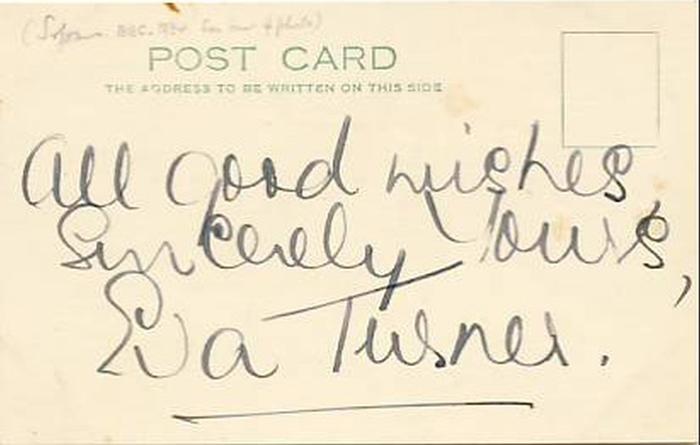 (Sopr. BBC.
POST CARD
THE ADDRESS TO BE WRITTEN ON THIS SIDE
All good wishes,
Sincerely Yours,
Eva Turner.